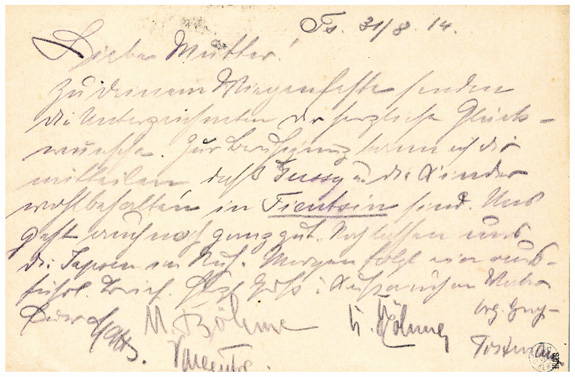 Ts. 31/8. 14.
Liebe Mutter!
Zu deinem Wiegenfeste senden
die Unterzeichneten dir herzliche Glück-
wünsche. Zur Beruhigung kann ich dir
mitteilen daß Gussy u. die Kinder
wohlbehalten in Tientsin sind. Uns
geht auch noch ganz gut. Noch lassen uns
die Japsen in Ruh. Morgen folgt ein aus-
führl. Brief. Herzl. Gruß
Dein
M. Böhme